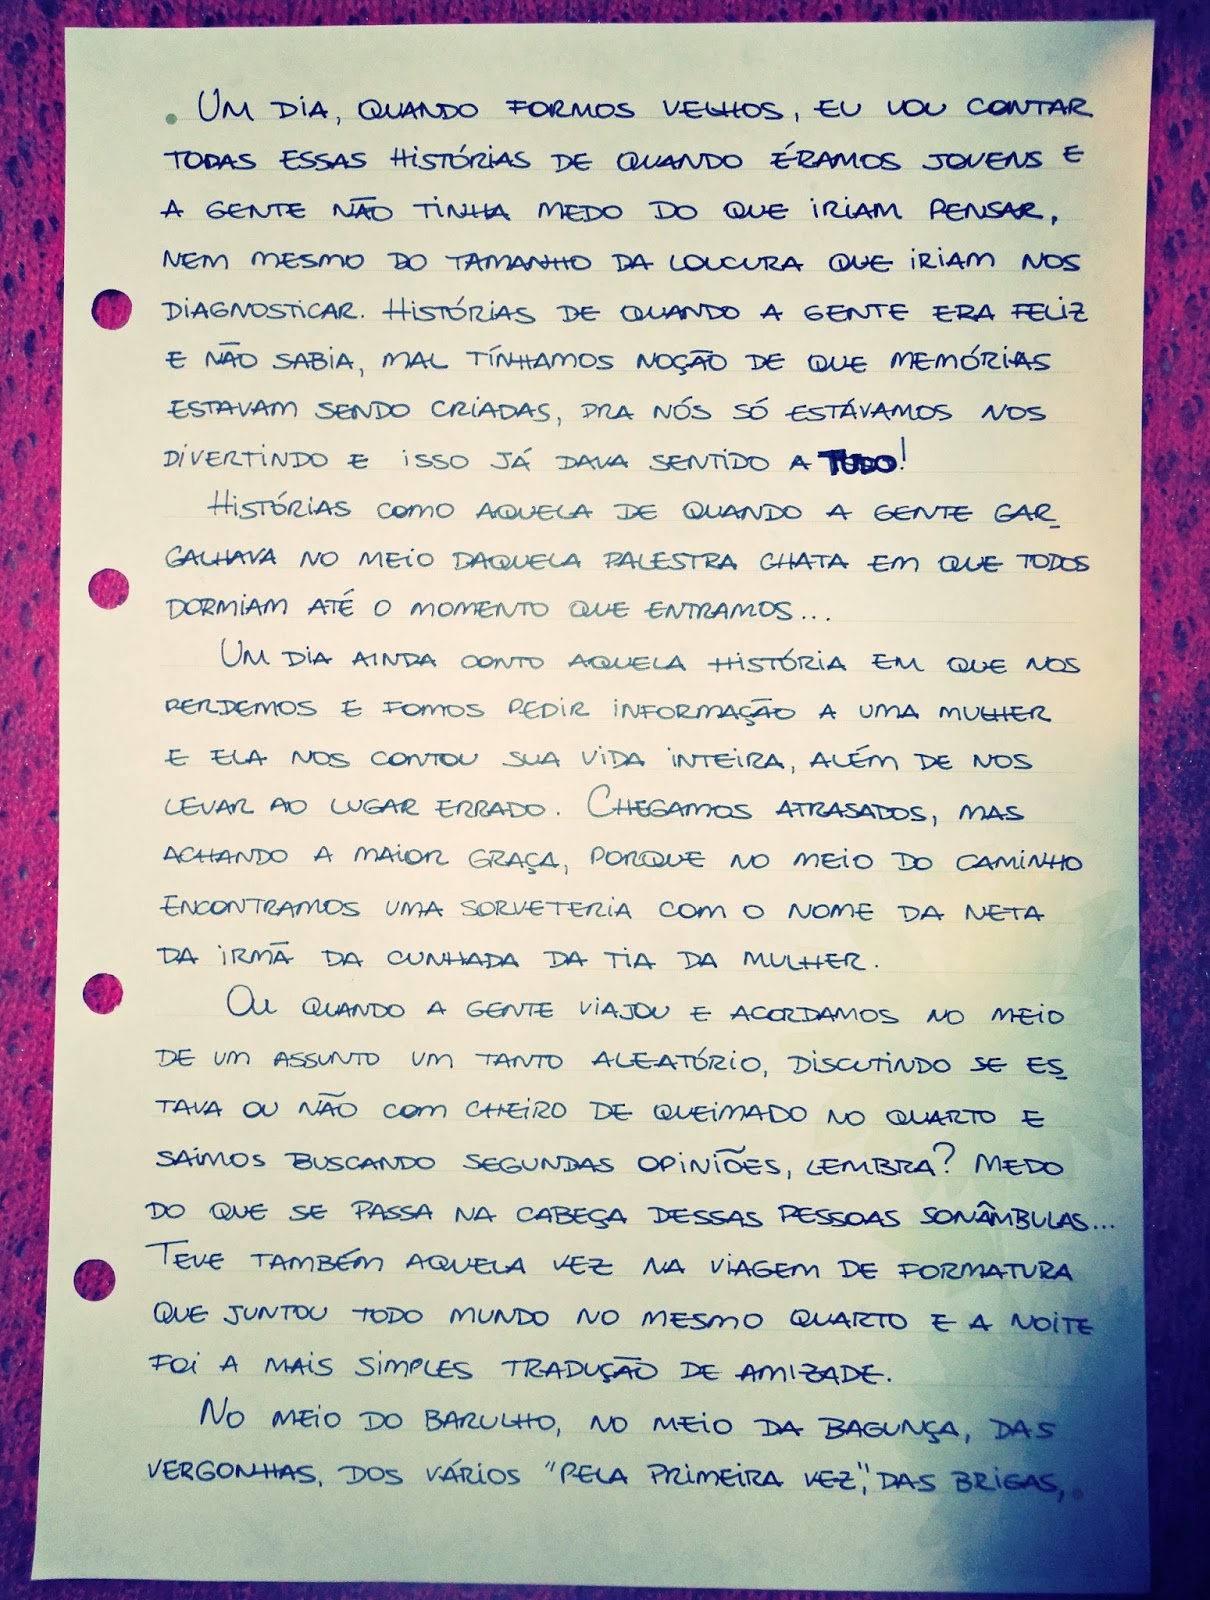 Um dia, quando formos velhos, eu vou contar
todas essas histórias de quando éramos jovens e
a gente não tinha medo do que iriam pensar,
nem mesmo do tamanho da loucura que iriam nos
diagnosticar. Histórias de quando a gente era feliz
e não sabia, mal tínhamos noção de que memórias
estavam sendo criadas, pra nós só estávamos nos
divertindo e isso já dava sentido a TUDO!
Histórias como aquela de quando a gente gar_
galhava no meio daquela palestra chata em que todos
dormiam até o momento que entramos...
Um dia ainda conto aquela história em que nos
perdemos e fomos pedir informação a uma mulher
e ela nos contou sua vida inteira, além de nos
levar ao lugar errado. Chegamos atrasados, mas
achando a maior graça, porque no meio do caminho
encontramos uma sorveteria com o nome da neta
da irmã da cunhada da tia da mulher.
Ou quando a gente viajou e acordamos no meio
de um assunto um tanto aleatório, discutindo se es_
tava ou não com cheiro de queimado no quarto e
saímos buscando segundas opiniões, lembra? Medo
do que se passa na cabeça dessas pessoas sonâmbulas...
Teve também aquela vez na viagem de formatura
que juntou todo mundo no mesmo quarto e a noite
foi a mais simples tradução de amizade.
No meio do barulho, no meio da bagunça, das
vergonhas, dos vários "pela primeira vez", das brigas,